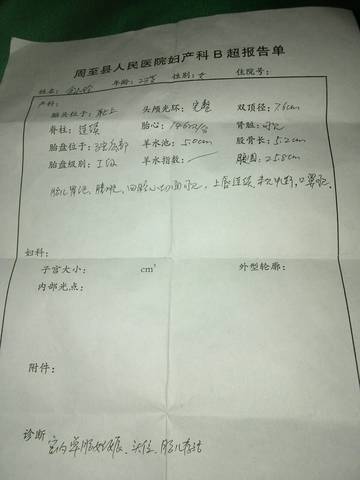 周至县人民医院妇产科B超报告单
姓名： 年龄： 性别：女 住院号：
产科：
胎头位于：耻上 头颅光环：完整 双顶径：7.6cm
脊柱：连续 胎心：146次/分 肾脏：可见
胎盘位于：宫底部 羊水池：5.0cm 股骨长：5.2cm
胎盘级别：I级 羊水指数： 腹围：25.8cm
胎儿胃泡、膀胱、四腔心切面可见，上唇连续
妇科：
子宫大小： cm³ 外型轮廓：
内部光点：
附件：
诊断 宫内单胎妊娠、头位、胎儿存活